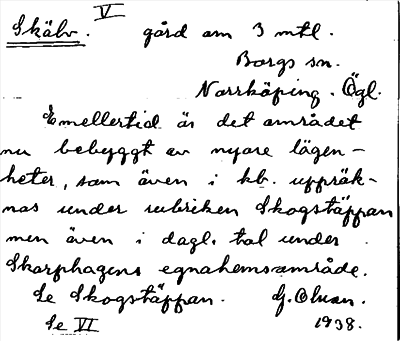 V
Skälv. gård om 3 mtl.
Borgs sn.
Norrköping. Ögl.
Emellertid är det området
nu bebyggt av nyare lägen-
heter, som även i kb. uppräk-
nas under rubriken Skogstäppan
men även i dagl. tal under
Skarphagens egnahemsområde.
Se Skogstäppan. G. Olson.
Se VI 1938.